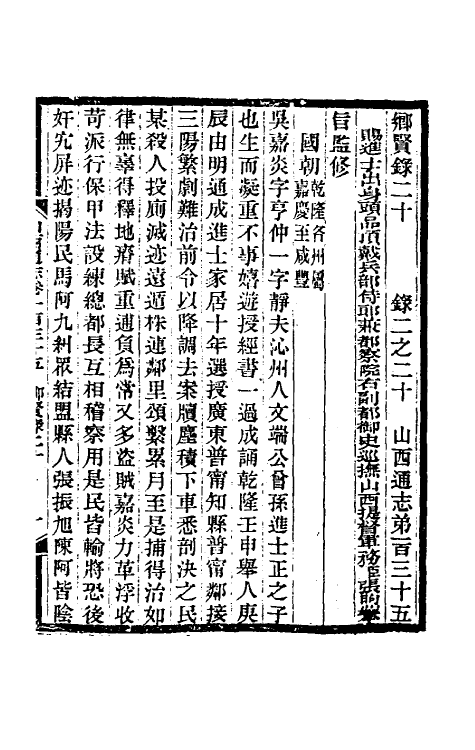 鄉賢錄二十　錄二之二十　山西通志弟一百三十五
賜進士出身頭品頂戴兵部侍郎兼都察院右副都御史巡撫山西提督軍務臣張煦奉
旨監修
國朝乾隆各州屬嘉慶至咸豐
吳嘉炎字亨仲一字靜夫沁州人文端公曾孫進士正之子
也生而凝重不事嬉遊授經書一過成誦乾隆壬申舉人庚
辰由明通成進士家居十年選授廣東普甯知縣普甯鄰接
三陽繁劇難治前令以降調去案牘塵積下車悉剖決之民
某殺人投廁滅迹遠遁株連鄰里頌繫累月至是捕得治如
律無辜得釋地瘠賦重逋負爲常又多盜賊嘉炎力革浮收
苛派行保甲法設練總都長互相稽察用是民皆輸將恐後
奸宄屏迹揭陽民馬阿九糾眾結盟縣人張振旭陳阿皆陰